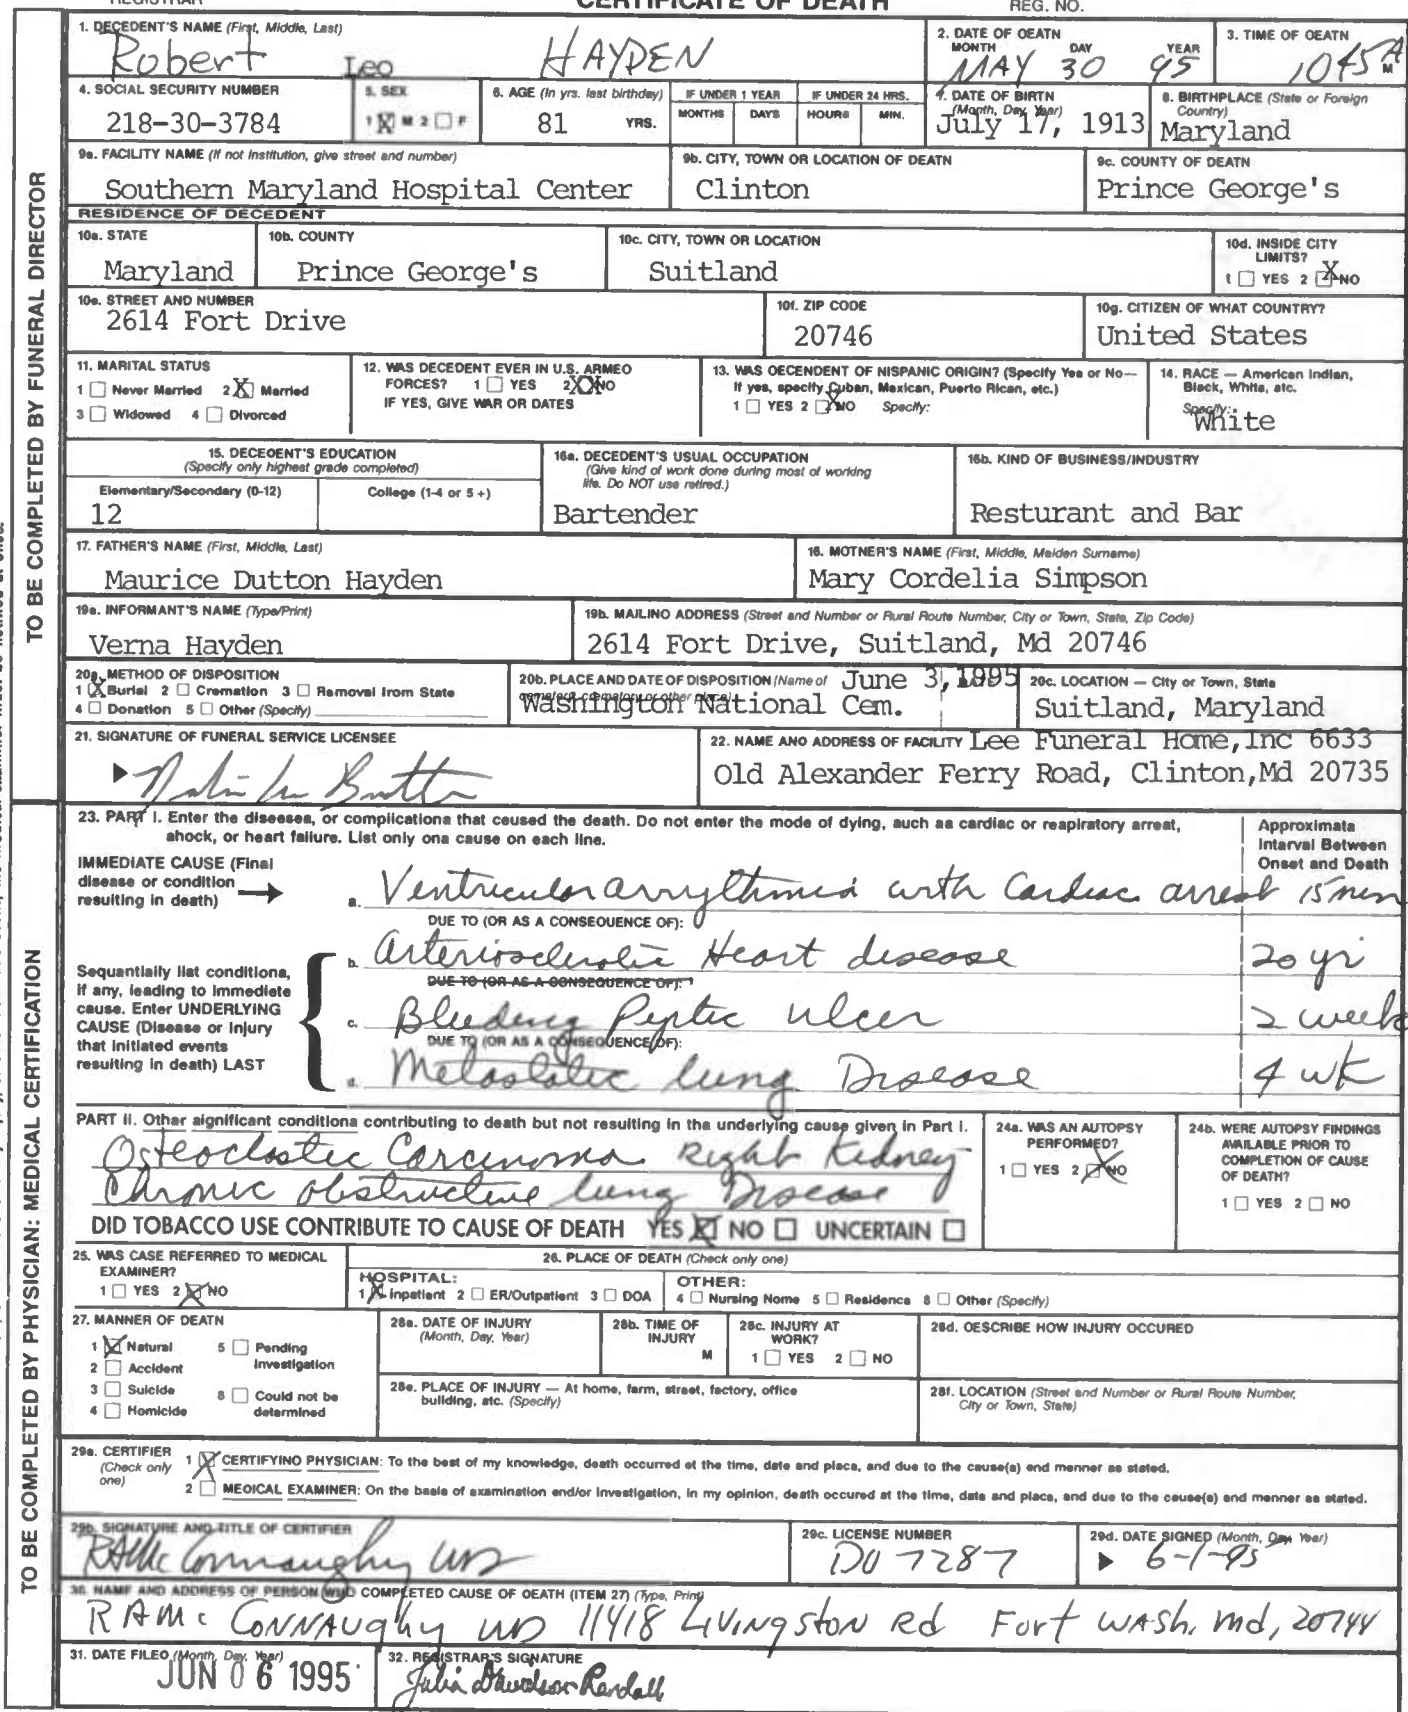 CERTIFICATE OF DEATH
REGISTRAR
REG. NO.
TO BE COMPLETED BY FUNERAL DIRECTOR
1. DECEDENT'S NAME (First, Middle, Last)
Robert Leo HAYDEN
2. DATE OF DEATH
MONTH DAY YEAR
MAY 30 95
3. TIME OF DEATH
1045 A M
4. SOCIAL SECURITY NUMBER
218-30-3784
5. SEX
1 X M 2 □ F
6. AGE (In yrs. last birthday)
81 YRS.
IF UNDER 1 YEAR
MONTHS DAYS
IF UNDER 24 HRS.
HOURS MIN.
7. DATE OF BIRTH
(Month, Day, Year)
July 17, 1913
8. BIRTHPLACE (State or Foreign
Country)
Maryland
9a. FACILITY NAME (If not institution, give street and number)
Southern Maryland Hospital Center
9b. CITY, TOWN OR LOCATION OF DEATH
Clinton
9c. COUNTY OF DEATH
Prince George's
RESIDENCE OF DECEDENT
10a. STATE
Maryland
10b. COUNTY
Prince George's
10c. CITY, TOWN OR LOCATION
Suitland
10d. INSIDE CITY
LIMITS?
1 □ YES 2 X NO
10e. STREET AND NUMBER
2614 Fort Drive
10f. ZIP CODE
20746
10g. CITIZEN OF WHAT COUNTRY?
United States
11. MARITAL STATUS
1 □ Never Married 2 X Married
3 □ Widowed 4 □ Divorced
12. WAS DECEDENT EVER IN U.S. ARMED
FORCES? 1 □ YES 2 XX NO
IF YES, GIVE WAR OR DATES
13. WAS DECENDENT OF HISPANIC ORIGIN? (Specify Yes or No—
If yes, specify Cuban, Mexican, Puerto Rican, etc.)
1 □ YES 2 X NO Specify:
14. RACE — American Indian,
Black, White, etc.
Specify:
White
15. DECEDENT'S EDUCATION
(Specify only highest grade completed)
Elementary/Secondary (0-12) College (1-4 or 5+)
12
16a. DECEDENT'S USUAL OCCUPATION
(Give kind of work done during most of working
life. Do NOT use retired.)
Bartender
16b. KIND OF BUSINESS/INDUSTRY
Resturant and Bar
17. FATHER'S NAME (First, Middle, Last)
Maurice Dutton Hayden
18. MOTHER'S NAME (First, Middle, Maiden Surname)
Mary Cordelia Simpson
19a. INFORMANT'S NAME (Type/Print)
Verna Hayden
19b. MAILING ADDRESS (Street and Number or Rural Route Number, City or Town, State, Zip Code)
2614 Fort Drive, Suitland, Md 20746
20a. METHOD OF DISPOSITION
1 X Burial 2 □ Cremation 3 □ Removal from State
4 □ Donation 5 □ Other (Specify)
20b. PLACE AND DATE OF DISPOSITION (Name of
cemetery, crematory or other place)
June 3, 1995
Washington National Cem.
20c. LOCATION — City or Town, State
Suitland, Maryland
21. SIGNATURE OF FUNERAL SERVICE LICENSEE
22. NAME AND ADDRESS OF FACILITY Lee Funeral Home,Inc 6633
Old Alexander Ferry Road, Clinton,Md 20735
TO BE COMPLETED BY PHYSICIAN: MEDICAL CERTIFICATION
23. PART I. Enter the diseases, or complications that caused the death. Do not enter the mode of dying, such as cardiac or respiratory arrest,
shock, or heart failure. List only one cause on each line.
Approximate
Interval Between
Onset and Death
IMMEDIATE CAUSE (Final
disease or condition
resulting in death)
a. Ventricular arrythmia with Cardiac arrest 15 min
DUE TO (OR AS A CONSEQUENCE OF):
Sequentially list conditions,
if any, leading to immediate
cause. Enter UNDERLYING
CAUSE (Disease or injury
that initiated events
resulting in death) LAST
b. Arteriosclerotic Heart disease 20 yr
DUE TO (OR AS A CONSEQUENCE OF):
c. Bleeding Peptic Ulcer 2 week
DUE TO (OR AS A CONSEQUENCE OF):
d. Metastatic lung Disease 4 wk
PART II. Other significant conditions contributing to death but not resulting in the underlying cause given in Part I.
Osteoclastic Carcinoma Right Kidney
Chronic obstructive lung Disease
DID TOBACCO USE CONTRIBUTE TO CAUSE OF DEATH YES X NO □ UNCERTAIN □
24a. WAS AN AUTOPSY
PERFORMED?
1 □ YES 2 X NO
24b. WERE AUTOPSY FINDINGS
AVAILABLE PRIOR TO
COMPLETION OF CAUSE
OF DEATH?
1 □ YES 2 □ NO
25. WAS CASE REFERRED TO MEDICAL
EXAMINER?
1 □ YES 2 X NO
26. PLACE OF DEATH (Check only one)
HOSPITAL:
1 X Inpatient 2 □ ER/Outpatient 3 □ DOA
OTHER:
4 □ Nursing Home 5 □ Residence 6 □ Other (Specify)
27. MANNER OF DEATH
1 X Natural 5 □ Pending
Investigation
2 □ Accident
3 □ Suicide 6 □ Could not be
determined
4 □ Homicide
28a. DATE OF INJURY
(Month, Day, Year)
28b. TIME OF
INJURY
M
28c. INJURY AT
WORK?
1 □ YES 2 □ NO
28d. DESCRIBE HOW INJURY OCCURED
28e. PLACE OF INJURY — At home, farm, street, factory, office
building, etc. (Specify)
28f. LOCATION (Street and Number or Rural Route Number,
City or Town, State)
29a. CERTIFIER
(Check only
one)
1 X CERTIFYING PHYSICIAN: To the best of my knowledge, death occurred at the time, date and place, and due to the cause(s) and manner as stated.
2 □ MEDICAL EXAMINER: On the basis of examination and/or investigation, in my opinion, death occured at the time, date and place, and due to the cause(s) and manner as stated.
29b. SIGNATURE AND TITLE OF CERTIFIER
RAMcConnaughy MD
29c. LICENSE NUMBER
D07287
29d. DATE SIGNED (Month, Day, Year)
6-1-95
30. NAME AND ADDRESS OF PERSON WHO COMPLETED CAUSE OF DEATH (ITEM 27) (Type, Print)
RAMc CONNAughy MD 11418 Livingston Rd Fort WASH. Md, 20744
31. DATE FILED (Month, Day, Year)
JUN 06 1995
32. REGISTRAR'S SIGNATURE
Julia Davidson Randall